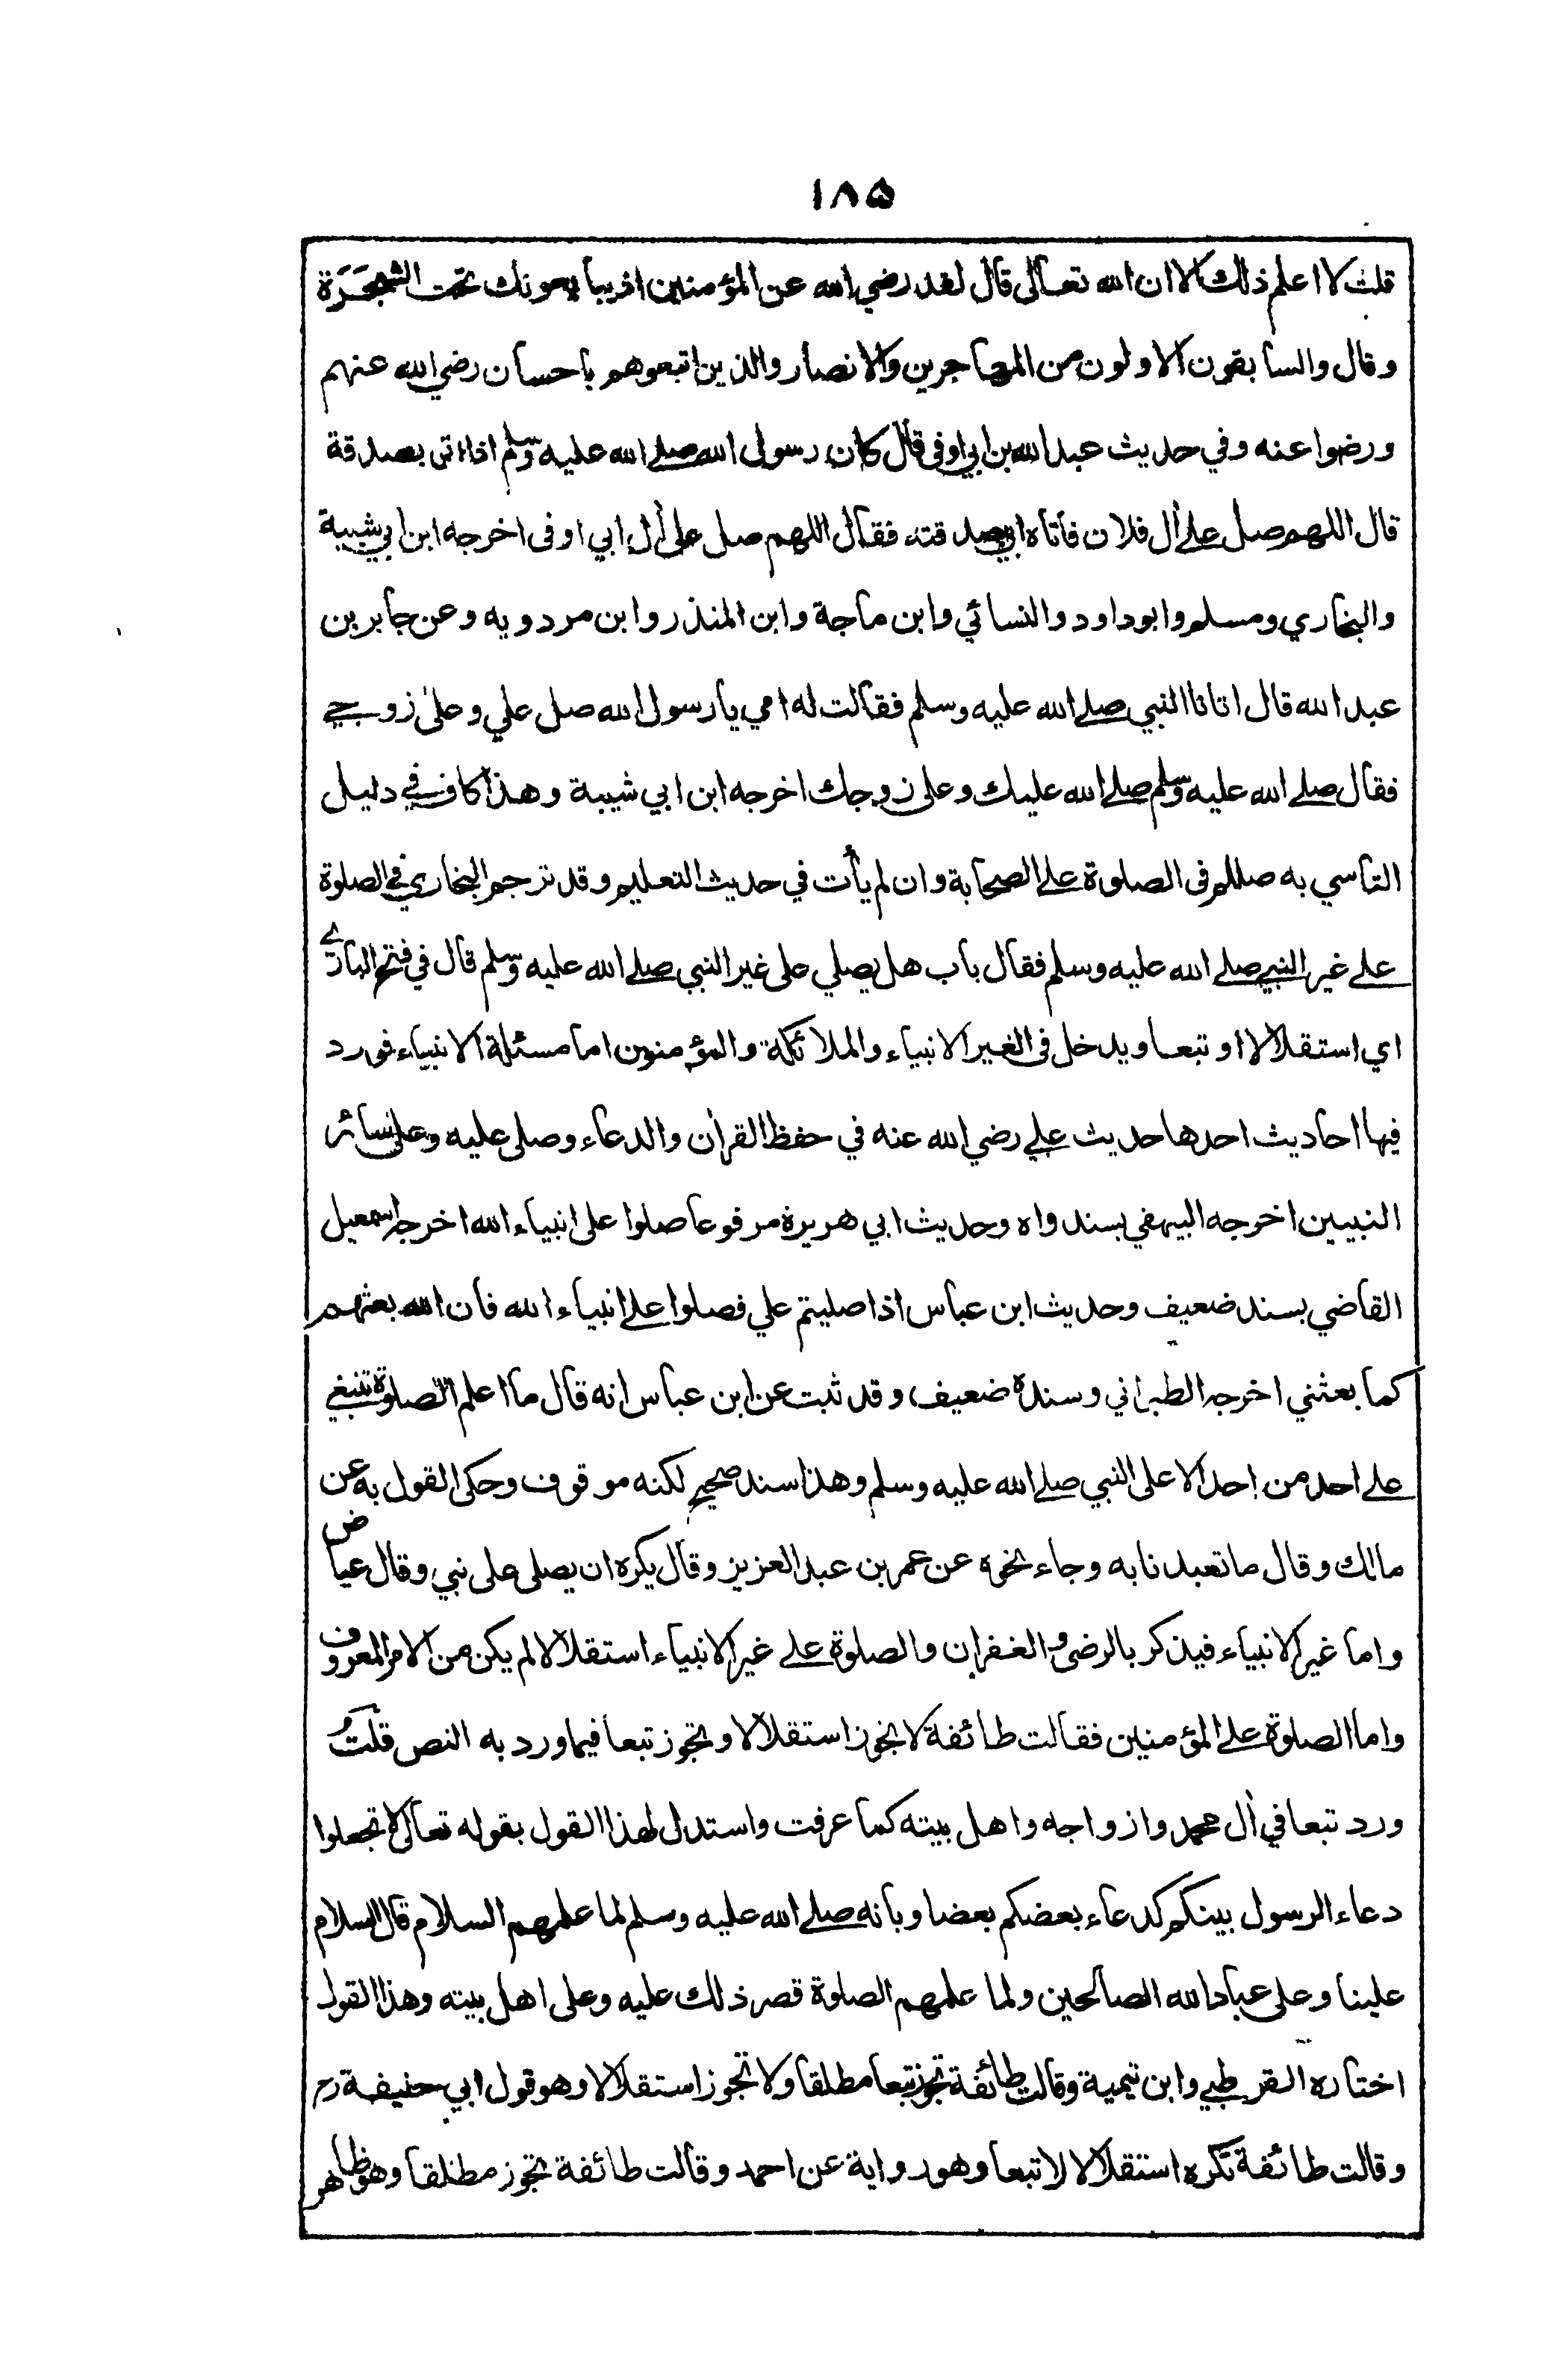 ١٨٥
قلت لا اعلم ذلك الا ان الله تعالى قال لقد رضي الله عن المؤمنين اذ يبايعونك تحت الشجرة
وقال والسابقون الاولون من المهاجرين والانصار والذين اتبعوهم باحسان رضي الله عنهم
ورضوا عنه وفي حديث عبد الله بن ابي اوفى قال كان رسول الله صلى الله عليه وسلم اذا اتى بصدقة
قال اللهم صل على أل فلان فأتاه ابي بصدقته فقال اللهم صل على أل ابي اوفى اخرجه ابن ابي شيبة
والبخاري ومسلم وابوداود والنسائي وابن ماجة وابن المنذر وابن مردويه وعن جابر بن
عبد الله قال اتانا النبي صلے الله عليه وسلم فقالت له امي يا رسول الله صل علي وعلى زوجي
فقال صلے الله عليه وسلم صلے الله عليك وعلى زوجك اخرجه ابن ابي شيبة وهذا كاف في دليل
التاسي به صللم فى الصلوة على الصحابة وان لم يأت في حديث التعليم وقد ترجم البخاري في الصلوة
على غير النبي صلے الله عليه وسلم فقال باب هل يصلي على غير النبي صلے الله عليه وسلم قال في فتح الباري
اي استقلالا او تبعا ويدخل فى الغير الانبياء والملائكة والمؤمنون اما مسئلة الانبياء فورد
فيها احاديث احدها حديث علي رضي الله عنه في حفظ القرأن والدعاء وصلى عليه وعلى سائر
النبيين اخرجه البيهقي بسند واه وحديث ابي هريرة مرفوعا صلوا على انبياء الله اخرجه اسمعيل
القاضي بسند ضعيف وحديث ابن عباس اذا صليتم علي فصلوا على انبياء الله فان الله بعثهم
كما بعثني اخرجه الطبراني وسنده ضعيف وقد ثبت عن ابن عباس انه قال ما اعلم الصلوة تنبغي
على احد من احد الا على النبي صلے الله عليه وسلم وهذا سند صحيح لكنه موقوف وحكى القول به عن
مالك وقال ما تعبدنا به وجاء نحوه عن عمر بن عبد العزيز وقال يكره ان يصلى على نبي وقال عياض
واما غير الانبياء فيذكر بالرضى والغفران والصلوة على غير الانبياء استقلالا لم يكن من الامر المعروف
واما الصلوة على المؤمنين فقالت طائفة لا تجوز استقلالا وتجوز تبعا فيما ورد به النص قلت
ورد تبعا في أل محمد وازواجه واهل بيته كما عرفت واستدل لهذا القول بقوله تعالى لا تجعلوا
دعاء الرسول بينكم كدعاء بعضكم بعضا وبانه صلے الله عليه وسلم لما علمهم السلام قال السلام
علينا وعلى عباد الله الصالحين ولما علمهم الصلوة قصر ذلك عليه وعلى اهل بيته وهذا القول
اختاره القرطبي وابن تيمية وقالت طائفة تجوز تبعا مطلقا ولا تجوز استقلالا وهو قول ابي حنيفة رح
وقالت طائفة تكره استقلالا لا تبعا وهو رواية عن احمد وقالت طائفة تجوز مطلقا وهو ظاهر